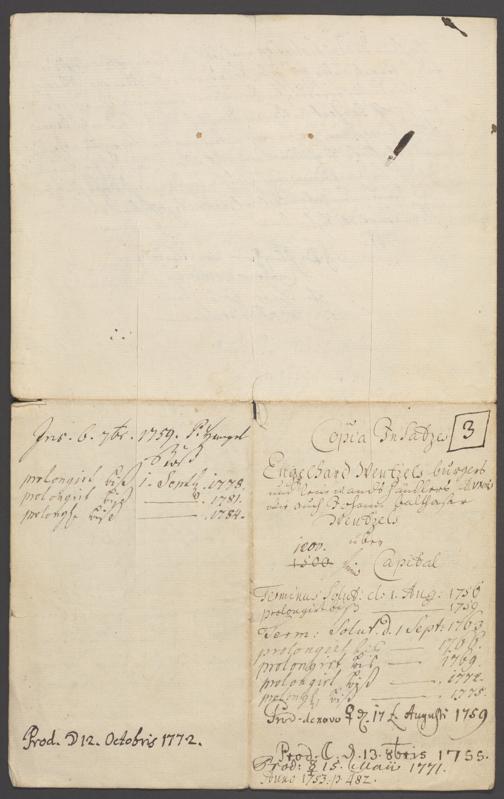 Ins. 6. 7br. 1759. P.
prolongirt biß 1. Sept. 1778.
prolongirt biß 1781.
prolongt biß 1784.
Prod. D 12. Octobris 1772.
Copia Insatzes 3
Engelhard Wentzels burgers
und handlers
wie auch Johann Balthasar
Wentzels
über
1200.
1500 Capital
Terminus Solut: d. 1. Aug: 1756
prolongirt biß 1759.
Term: Solut. d. 1 Sept: 1763
prolongirt biß 1766.
prolongirt biß 1769.
prolongirt biß 1772.
prolongt biß 1775.
Prod. denovo 17 Augusti 1759
Prod. d. 13. 8bris 1755.
Prod: 15. Maii 1771.
Anno 1753. p. 482.